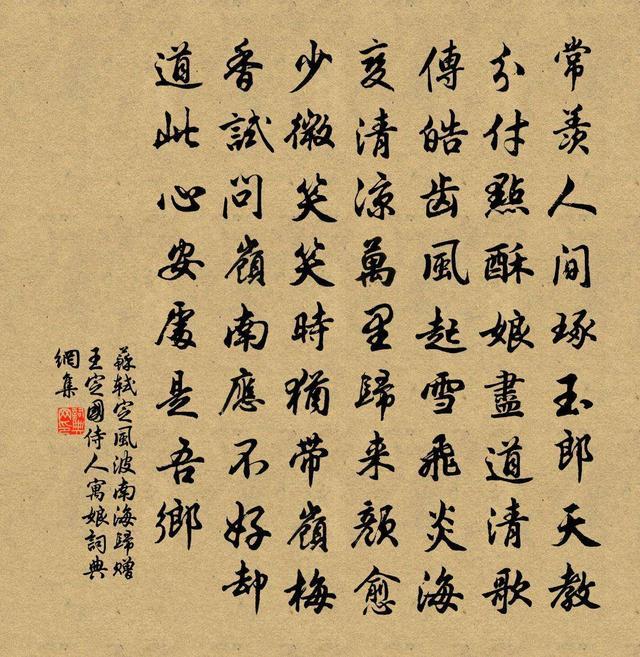 常羨人間琢玉郎天教
分付點酥娘盡道清歌
傳皓齒風起雪飛炎海
變清涼萬里歸来顏愈
少微笑笑時猶帶嶺梅
香試問嶺南應不好却
道此心安處是吾鄉
蘇軾定風波南海歸贈
王定國侍人寓娘詞典
網集